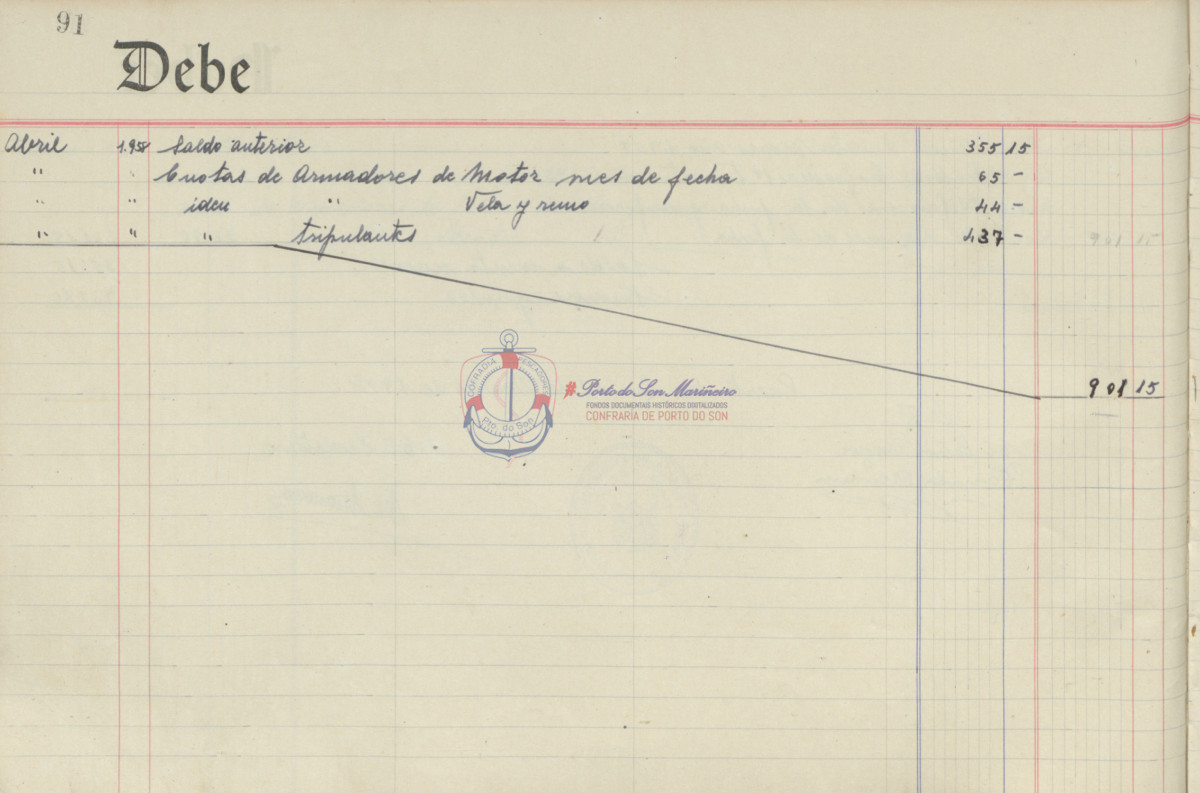 91
Debe
Abril 1.958 Saldo anterior 355 15
" " Cuotas de Armadores de Motor mes de fecha 65 -
" " idem " Vela y remo 44 -
" " " tripulantes 437 - 901 15
901 15
COFRADIA PESCADORES
Pto. do Son
#Porto do Son Mariñeiro
FONDOS DOCUMENTAIS HISTÓRICOS DIXITALIZADOS
CONFRARÍA DE PORTO DO SON